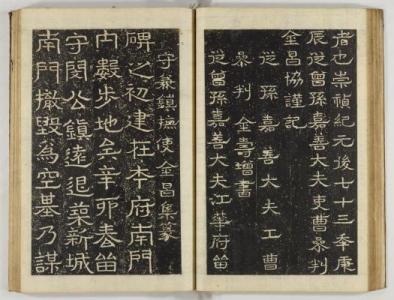 者也崇禎紀元後七十三年庚
辰從曾孫嘉善大夫吏曹參判
金昌協謹記
從孫嘉善大夫工曹
參判金壽增書
從曾孫嘉善大夫江華府留
守兼鎮撫使金昌集篆
碑之初建在本府南門
內數步地矣辛卯春留
守閔公鎮遠退築新城
南門撤毀爲空基乃謀